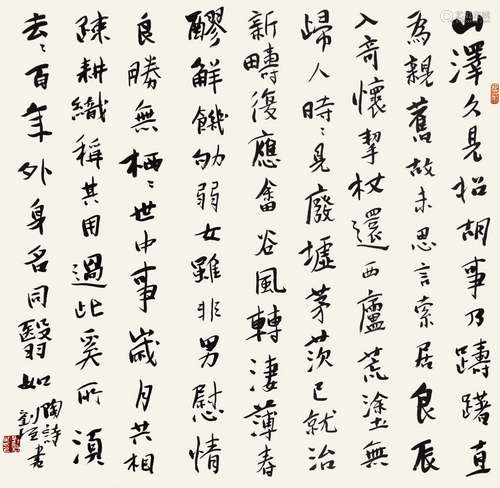 山澤久見招胡事乃躊躇直
為親舊故未思言索居良辰
入奇懷挈杖還西廬荒塗無
歸人時〻見廢墟茅茨已就治
新疇復應畬谷風轉淒薄春
醪解饑劬弱女雖非男慰情
良勝無栖〻世中事歲月共相
疎耕織稱其用過此奚所須
去〻百年外身名同翳如
陶詩
劉恒書